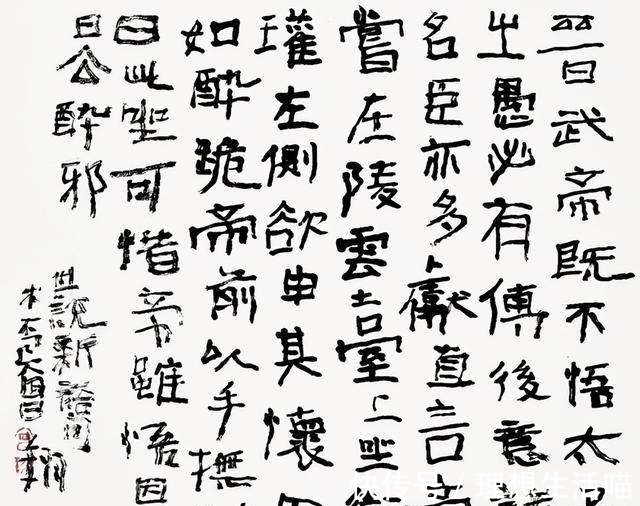 晉武帝既不悟太
之愚必有傳後意
名臣亦多獻直言
嘗在陵雲臺上坐
瓘左側欲申其懷
如醉跪帝前以手撫
曰此坐可惜帝雖悟因
曰公醉邪
世說新語
快传号 / 理想生活喵